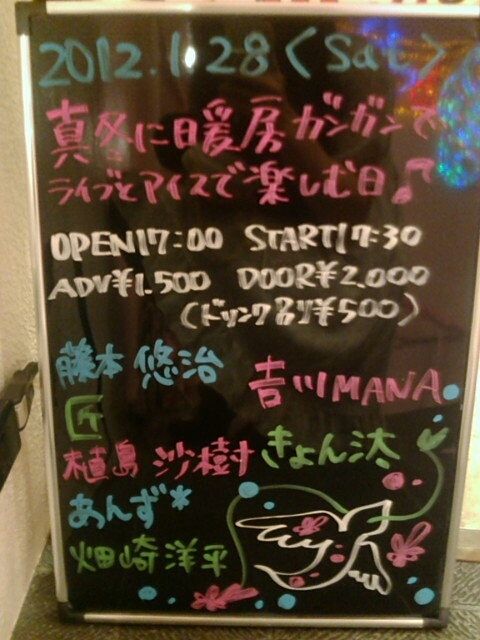 2012.1.28 (Sat)
真冬に暖房ガンガンで
ライブとアイスで楽しむ日♪
OPEN17:00 START17:30
ADV¥1.500 DOOR¥2.000
(ドリンク別¥500)
藤本 悠治
吉川MANA
匠
植島 沙樹
きょん汰
あんず*
畑崎 洋平